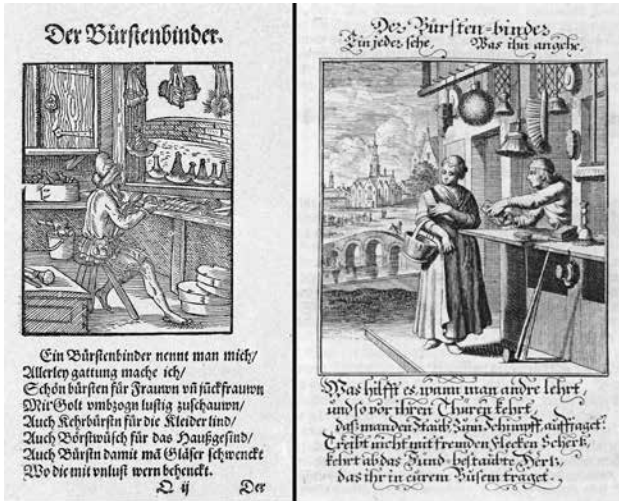 Der Bürstenbinder.
Ein Bürstenbinder nennt man mich/
Allerley gattung mache ich/
Schön bürsten für Frauwn vñ jückfrauwn
Mit Golt vmbzogn lustig zuschauwn/
Auch Kehrbürstn für die Kleider lind/
Auch Börstwüsch für das Haußgesind/
Auch Bürstn damit mã Gläser schwenckt
Wo die mit vnlust wern behenckt.
Q ij Der
Der Bürsten-binder
Ein jeder sehe, Was ihn angehe.
Was hilfft es, wann man andre lehrt,
und so vor ihren Thüren kehrt,
daß man den Staub zum Schimpff auffraget?
Treibt nicht mit fremden Flecken Schertz,
kehrt ab das Sünd-bestaubte Hertz,
das ihr in eurem Busem traget.